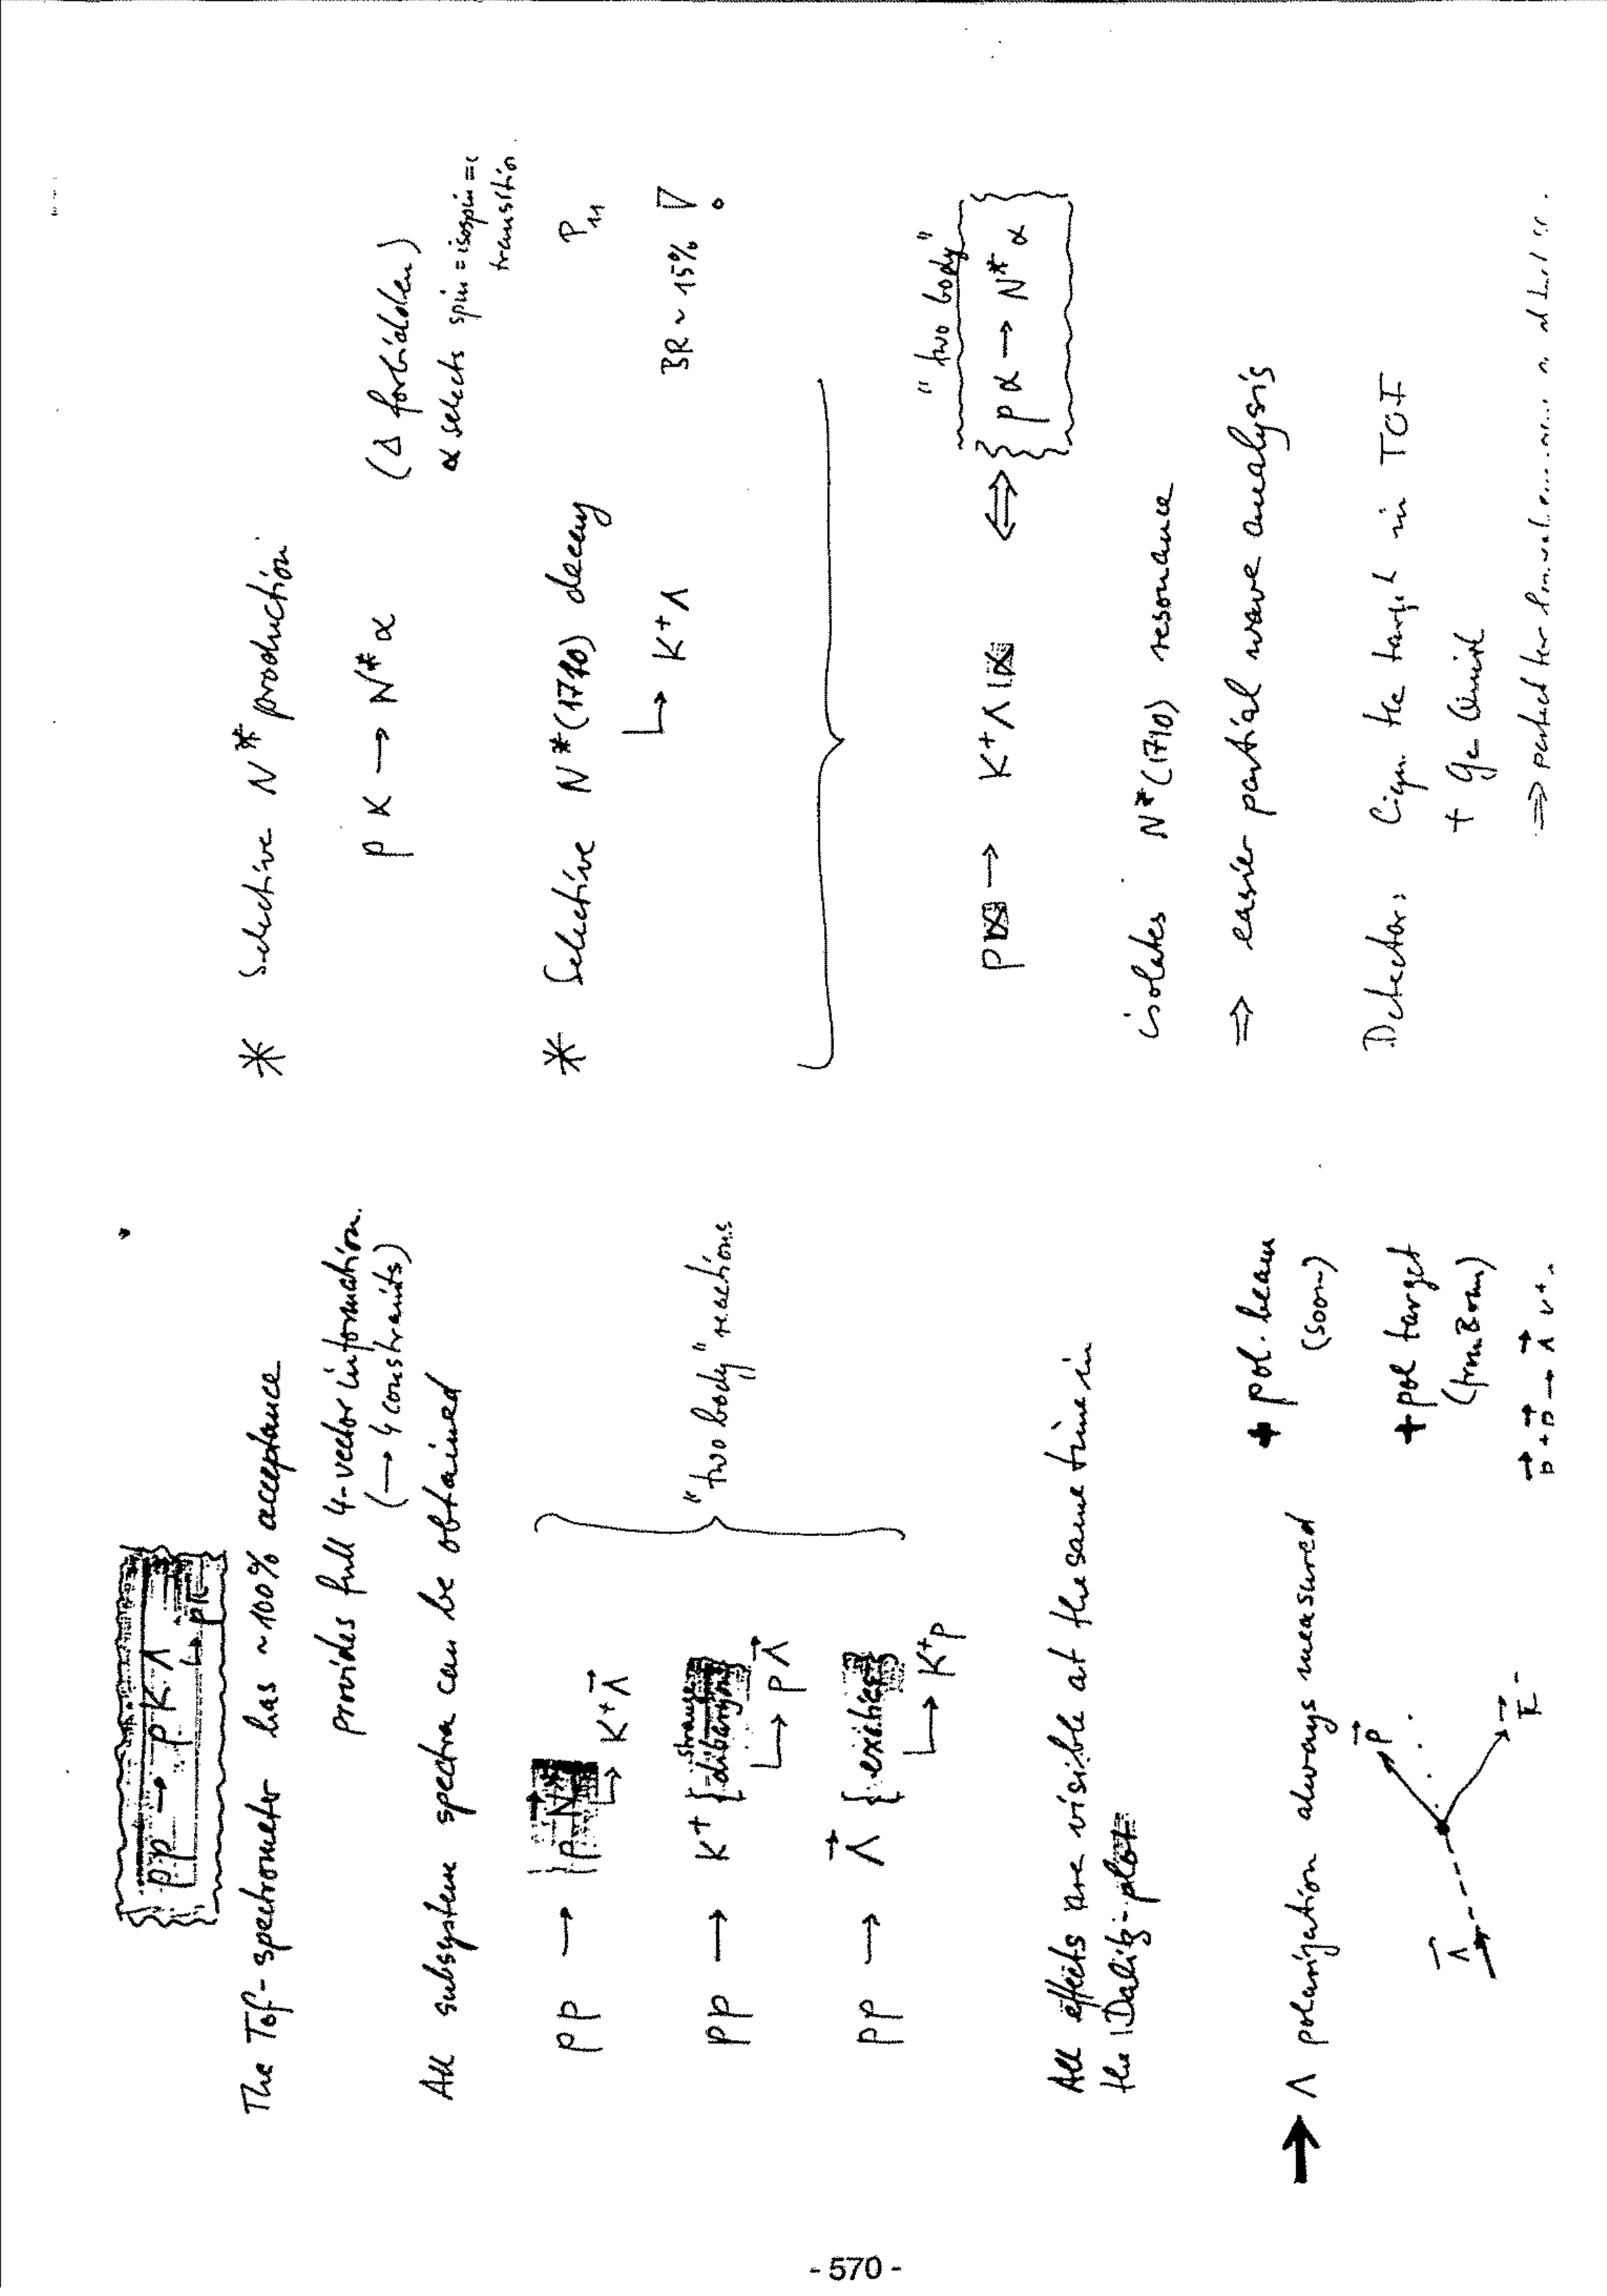 pp → pKΛ
↳ pπ
The Tof-spectrometer has ~100% acceptance
provides full 4-vector information.
(→ 4 constraints)
All subsystem spectra can be obtained
pp → p N*
↳ K⁺ Λ⃗
"two body" reactions
pp → K⁺ {strange dibaryon}
↳ p Λ⃗
pp → Λ⃗ {exotics}
↳ K⁺p
All effects are visible at the same time in
the Dalitz-plot
→ Λ polarization always measured
+ pol. beam
(soon)
+ pol target
(from Bonn)
Λ⃗
p⃗
π⃗⁻
p⃗ + p⃗ → Λ⃗
* Selective N* production
p α → N* α
(Δ forbidden)
α selects spin=isospin=
transition
* Selective N*(1710) decay
P₁₁
↳ K⁺ Λ
BR ~ 15% !
"two body"
pα → K⁺ Λ α ⇔ pα → N* α
isolates N*(1710) resonance
⇒ easier partial wave analysis
Detector: He target in TOF
+ Ge
⇒
- 570 -